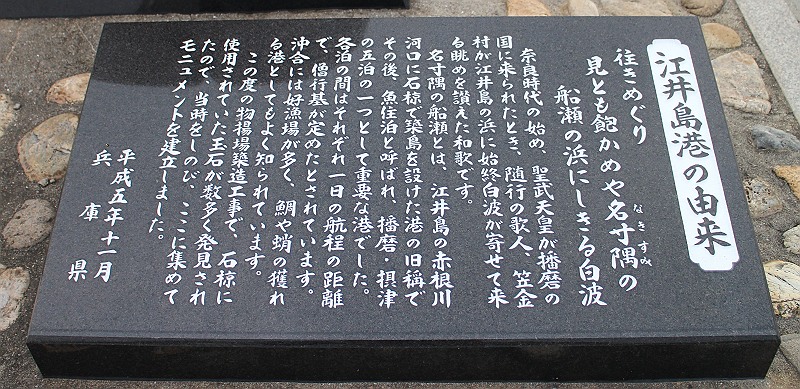 江井島港の由来
往きめぐり
見とも飽かめや名寸隅の
なきすみ
船瀬の浜にしきる白波
奈良時代の始め、聖武天皇が播磨の
国に来られたとき、随行の歌人、笠金
村が江井島の浜に始終白波が寄せて来
る眺めを讃えた和歌です。
名寸隅の船瀬とは、江井島の赤根川
河口に石椋で築島を設けた港の旧称で
その後、魚住泊と呼ばれ、播磨・摂津
の五泊の一つとして重要な港でした。
各泊の間はそれぞれ一日の航程の距離
で、僧行基が定めたとされています。
沖合には好漁場が多く、鯛や蛸の獲れ
る港としてもよく知られています。
この度の物揚場築造工事で、石椋に
使用されていた玉石が数多く発見され
たので、当時をしのび、ここに集めて
モニュメントを建立しました。
平成五年十一月
兵庫県